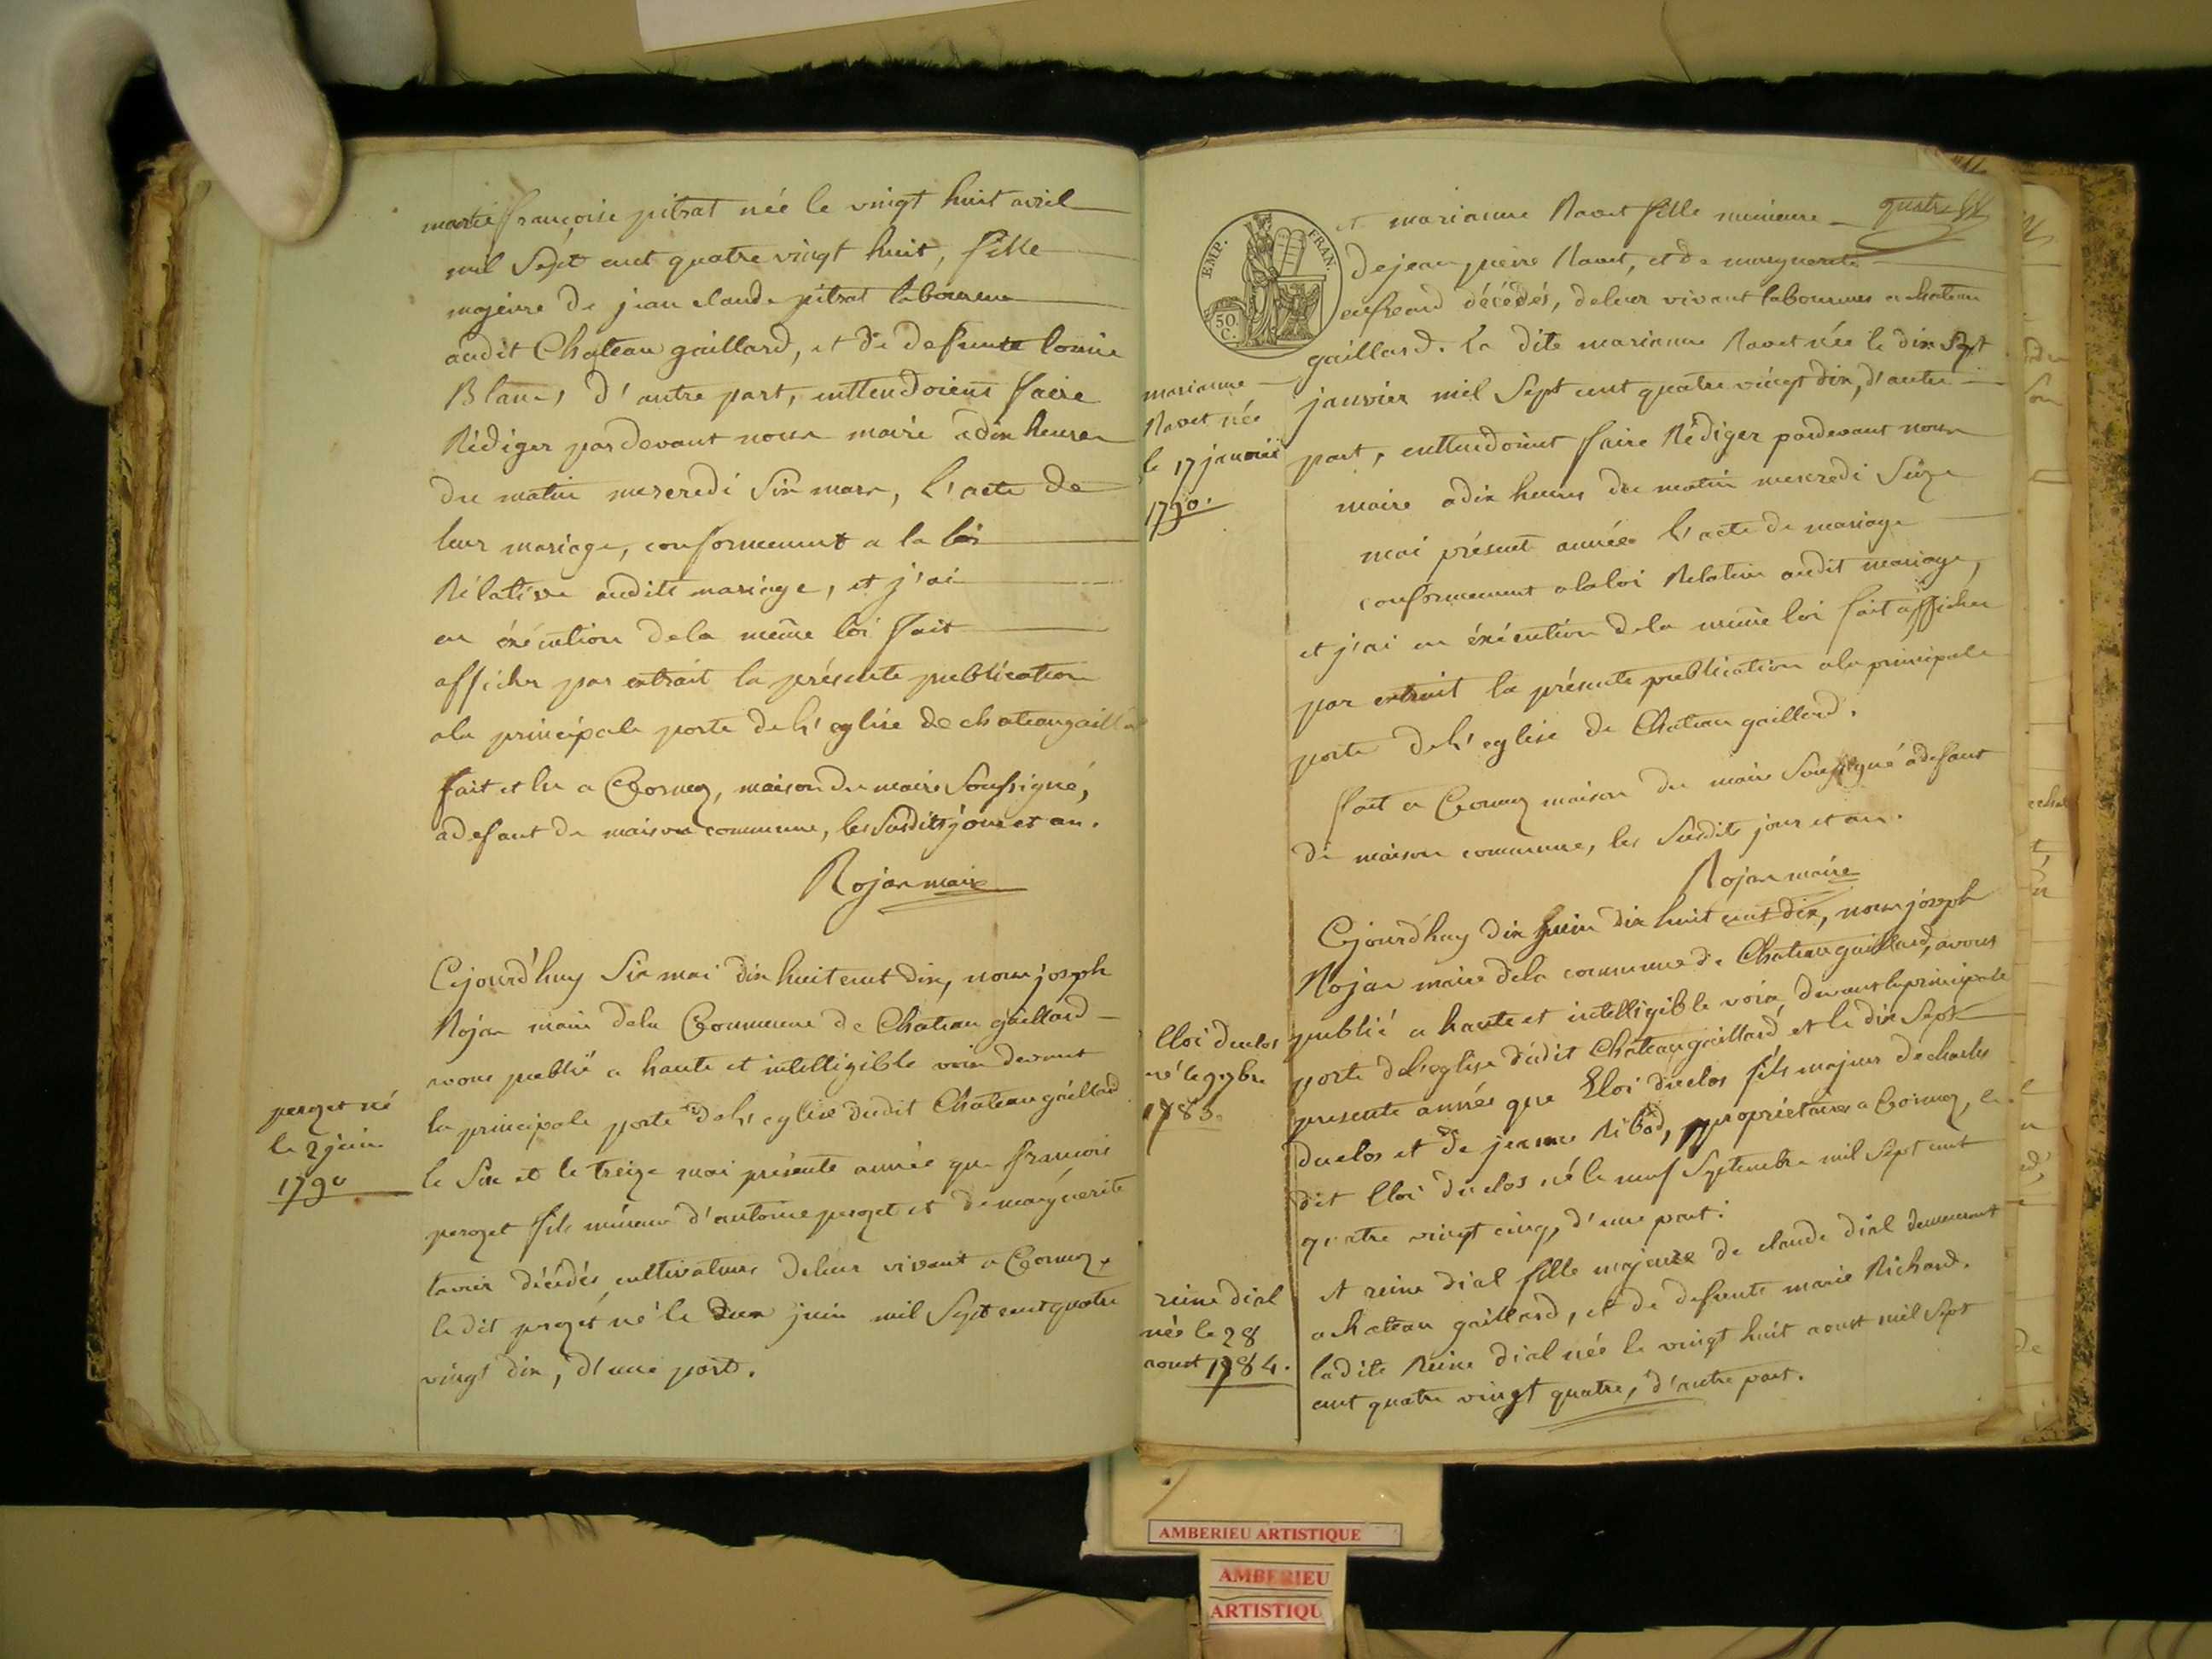 marie françoise pitrat née le vingt huit avril
mil Sept cent quatre vingt huit, fille
majeure de jean claude pitrat laboureur
audit Chateau gaillard, et de defunte Louise
Blanc, d'autre part, enttendoient faire
Rédiger pardevant nous maire a dix heures
du matin mercredi six mars, l'acte de
leur mariage, conformement a la loi
Rélative audit mariage, et j'ai
en éxécution dela meme loi fait
afficher par extrait la présente publication
ala principale porte de l'eglise de chateaugaillard
fait et lu a Cormoz, maison du maire Soussigné,
adefaut de maison commune, les Susdits jour et an.
Rojan maire
Cejourd'huy Six mai dix huit cent dix, nous joseph
Rojan maire dela Commune de Chateau gaillard
avons publié a haute et intelligible voix devant
la principale porte de l'eglise dudit Chateaugaillard
le Six et le treize mai présente année que françois
peroget fils mineur d'antoine peroget et de marguerite
tavier décédés cultivateurs deleur vivant a Cormoz,
le dit peroget né le deux juin mil Sept cent quatre
vingt dix, d'une part.
peroget né
le 2 juin
1790
EMP. FRAN.
50.
C.
quatre
et marianne Ravet fille mineure
de jean pierre Ravet, et de marguerite
décédés, deleur vivant laboureurs a chateau
gaillard. la dite marianne Ravet née le dix sept
janvier mil Sept cent quatre vingt dix, d'autre
part, enttendoient faire Rédiger pardevant nous
maire a dix heures du matin mercredi Seize
mai présente année l'acte de mariage
conformement a la loi Relative audit mariage,
et j'ai en éxécution dela meme loi fait afficher
par extrait la présente publication ala principale
porte de l'eglise de Chateau gaillard.
fait a Cormoz maison du maire Soussigné adefaut
de maison commune, les Susdits jour et an.
Rojan maire
marianne
Ravet née
le 17 janvier
1790.
Cejourd'huy dix juin dix huit cent dix, nous joseph
Rojan maire dela commune de Chateaugaillard, avons
publié a haute et intelligible voix devant la principale
porte de l'eglise dudit Chateaugaillard et le dix Sept
presente année que Eloi duclos fils majeur de charles
duclos et de jeanne Ribod, propriétaires a Cormoz, le
dit Eloi duclos né le neuf Septembre mil Sept cent
quatre vingt cinq, d'une part.
et reine dial fille majeure de claude dial demeurant
a chateau gaillard, et de defunte marie Richard.
ladite Reine dial née le vingt huit aoust mil Sept
cent quatre vingt quatre, d'autre part.
Eloi duclos
né le 9 7bre
1785.
reine dial
née le 28
aoust 1784.
AMBERIEU ARTISTIQUE
AMBERIEU
ARTISTIQU